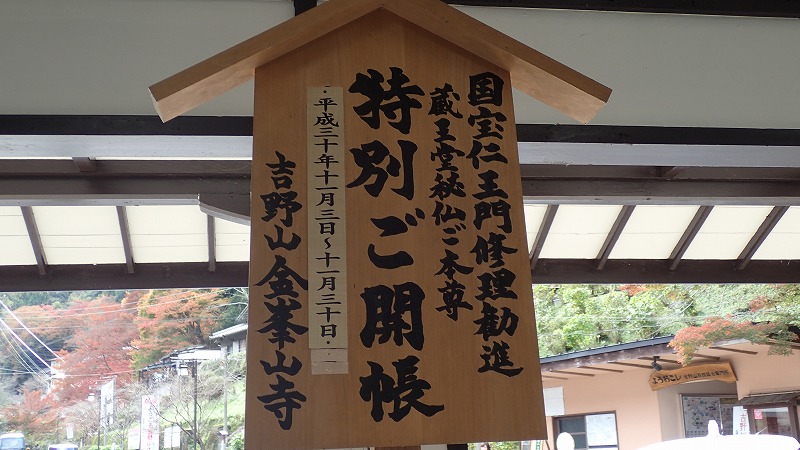 国宝仁王門修理勧進
蔵王堂秘仏ご本尊
特別ご開帳
・平成三十年十一月三日～十一月三十日・
吉野山金峯山寺
ようおこし